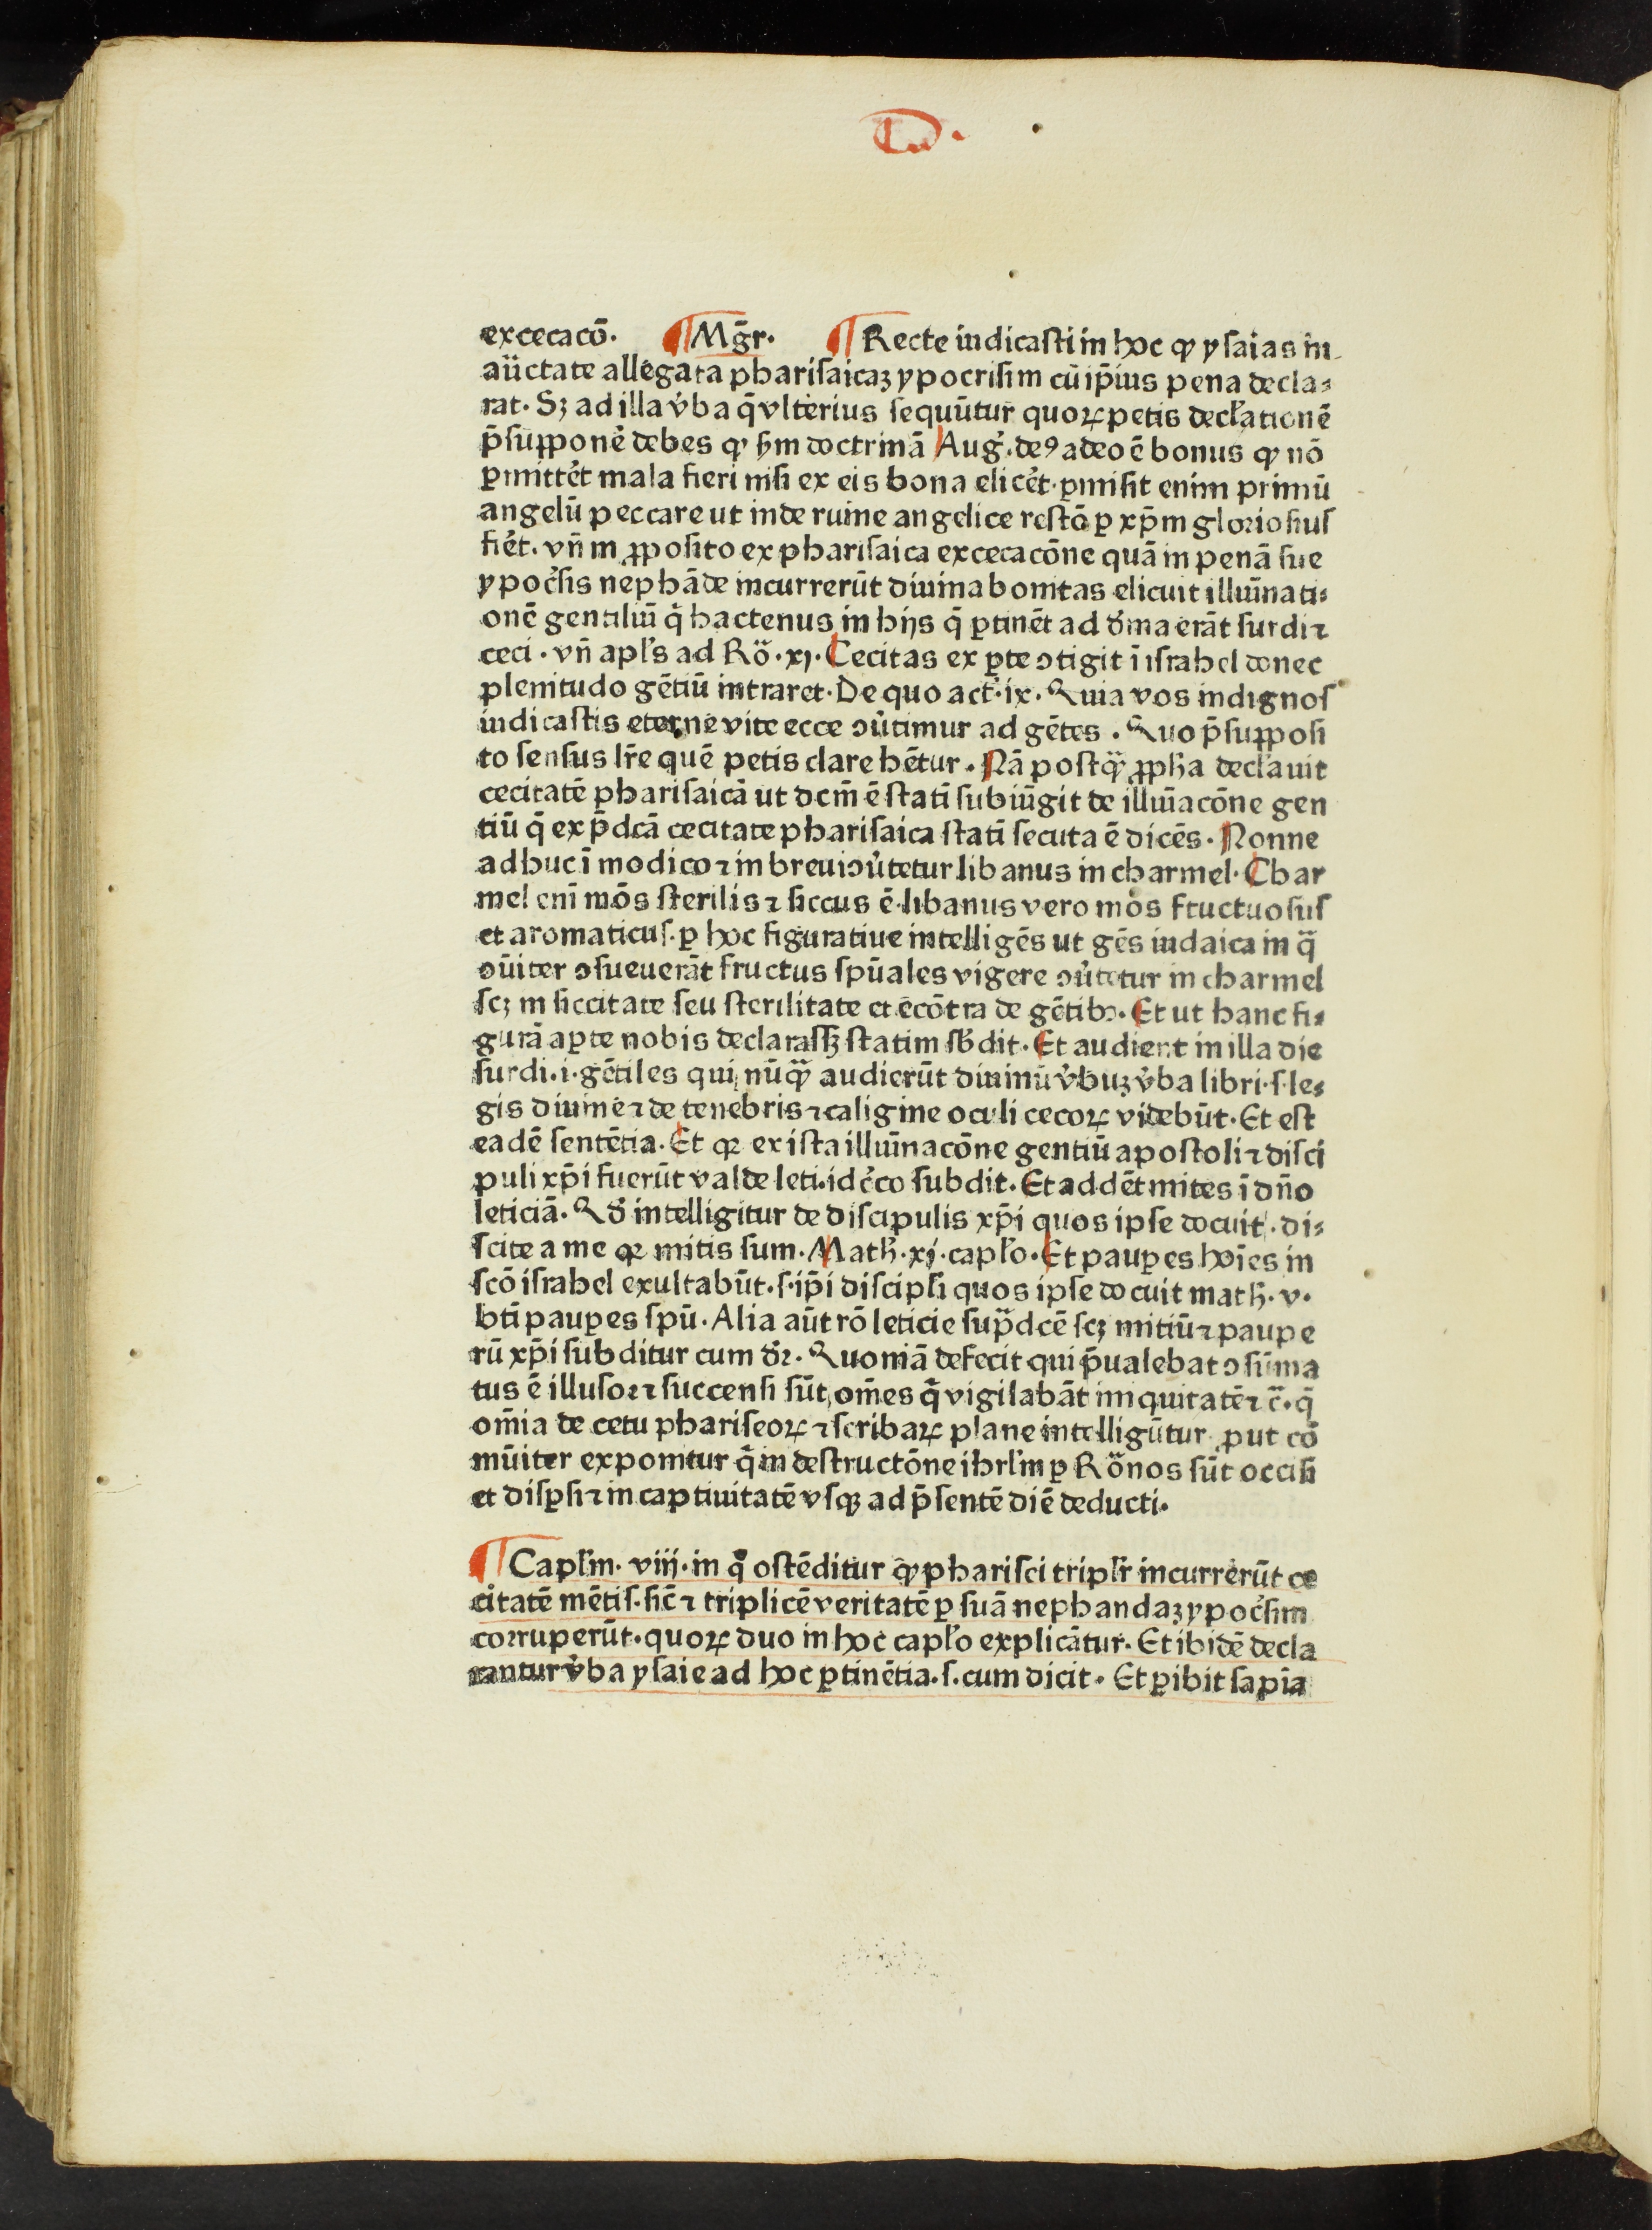 excecacō. ¶ Mḡr. ¶ Recte iudicasti in hoc ꝙ ysaias in
aüctate allegata pharisaicaȝ ypocrisim cū ip̄ius pena decla⸗
rat. Sȝ ad illa v̓ba q̄ vlterius sequūtur quoꝝ petis decl̓ationē
p̄supponē debes ꝙ ẜm doctrinā Aug̓. deꝰ adeo ē bonus ꝙ nō
ꝑmittēt mala fieri nisi ex eis bona elicēt. ꝑmisit enim primū
angelū peccare ut inde ruine angelice restō ꝑ xp̄m gloriosius
fiēt. vn̄ in ꝓposito ex pharisaica excecacōne quā in penā sue
ypoc̓sis nephāde incurrerūt diuina bonitas elicuit illuīnati⸗
onē gentiliū q̄ hactenus in hijs q̄ ꝑtinēt ad d̓ina erāt surdi ⁊
ceci. vn̄ apl̓s ad Rö. xj. Cecitas ex ꝑte ↄtigit ī israhel donec
plenitudo gētiū intraret. De quo act̓. ix. Quia vos indignos
iudicastis eterne vite ecce ↄūtimur ad gētes. Quo p̄supposi
to sensus lr̄e quē petis clare hētur. Nā postꝙ̈ ꝓph̓a decl̓auit
cecitatē pharisaicā ut dcm̄ ē statī subiūgit de illuīacōne gen
tiū q̄ ex p̄dcā cecitate pharisaica statī secuta ē dicēs. Nonne
adhuc ī modico ⁊ in breui ↄūtetur libanus in charmel. Char
mel enī mōs sterilis ⁊ siccus ē. libanus vero mōs fructuosus
et aromaticus. ꝑ hoc figuratiue intelligēs ut gēs iudaica in q̈
ↄūiter ↄsueuerāt fructus spūales vigere ↄūtetur in charmel
scȝ in siccitate seu sterilitate et ecōtra de gētibꝰ. Et ut hanc fi⸗
gurā aꝑte nobis declarassȝ statim sb̓dit. Et audient in illa die
surdi. i. gētiles qui nūꝙ̈ audierūt diuinū v̓buȝ v̓ba libri. s. le⸗
gis diuine ⁊ de tenebris ⁊ caligine oculi cecoꝝ videbūt. Et est
eadē sentētia. Et qꝛ ex ista illuīnacōne gentiū apostoli ⁊ disci
puli xp̄i fuerūt valde leti. idc̓co subdit. Et addēt mites ī dn̄o
leticiā. Qd̓ intelligitur de discipulis xp̄i quos ipse docuit. di⸗
scite a me qꝛ mitis sum. Math̓. xj. capl̓o. Et pauꝑes hoīes in
scō israhel exultabūt. s. ip̄i discipl̓i quos ipse docuit math̓. v.
btī pauꝑes spū. Alia aūt rō leticie sup̈dcē scȝ mitiū ⁊ pauꝑe
rū xp̄i subditur cum dr̓. Quoniā defecit qui p̄ualebat ↄsūma
tus ē illusor ⁊ succensi sūt om̄es q̄ vigilabāt iniquitatē ⁊ c̄. q̄
om̄ia de cetu phariseoꝝ ⁊ scribaꝝ plane intelligūtur ꝓut cō
mūiter exponitur q̄ in destructōne ihrl̓m ꝑ Rönos sūt occisi
et disꝑsi ⁊ in captiuitatē vsqꝫ ad p̄sentē diē deducti.
¶ Capl̓m. viij. in q̊ ostēditur ꝙ pharisei tripl̓r incurrerūt ce
citatē mētis. sic̄ ⁊ triplicē veritatē ꝑ suā nephandaȝ ypoc̓sim
corruperūt. quoꝝ duo in hoc capl̓o explicātur. Et ibidē decla
rantur v̓ba ysaie ad hoc ꝑtinētia. s. cum dicit. Et ꝑibit sapīa